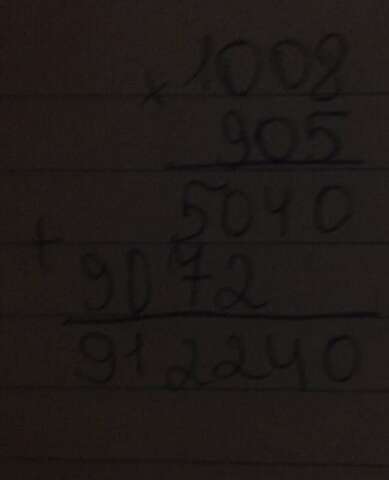 × 1008
905
5040
+ 9072
912240